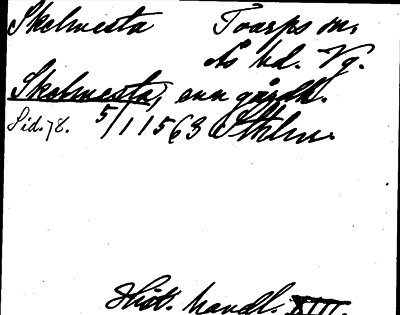 Skelmesta Toarps sn.
Ås hd. Vg.
Skelmesta, enn gårdh.
Sid. 78. 5/1 1563 Sthlm.
Hist. handl. XIII.